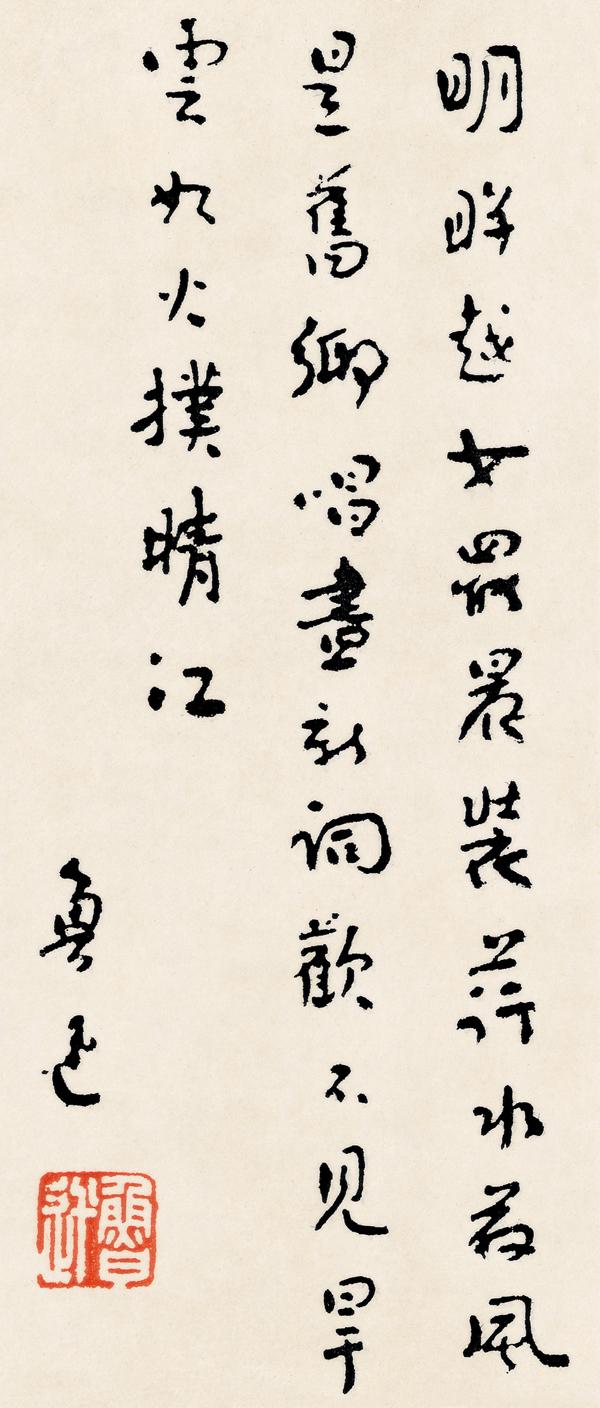 明眸越女罷晨裝荇水荷風
是舊鄉唱盡新詞歡不見旱
雲如火撲晴江
魯迅
魯迅